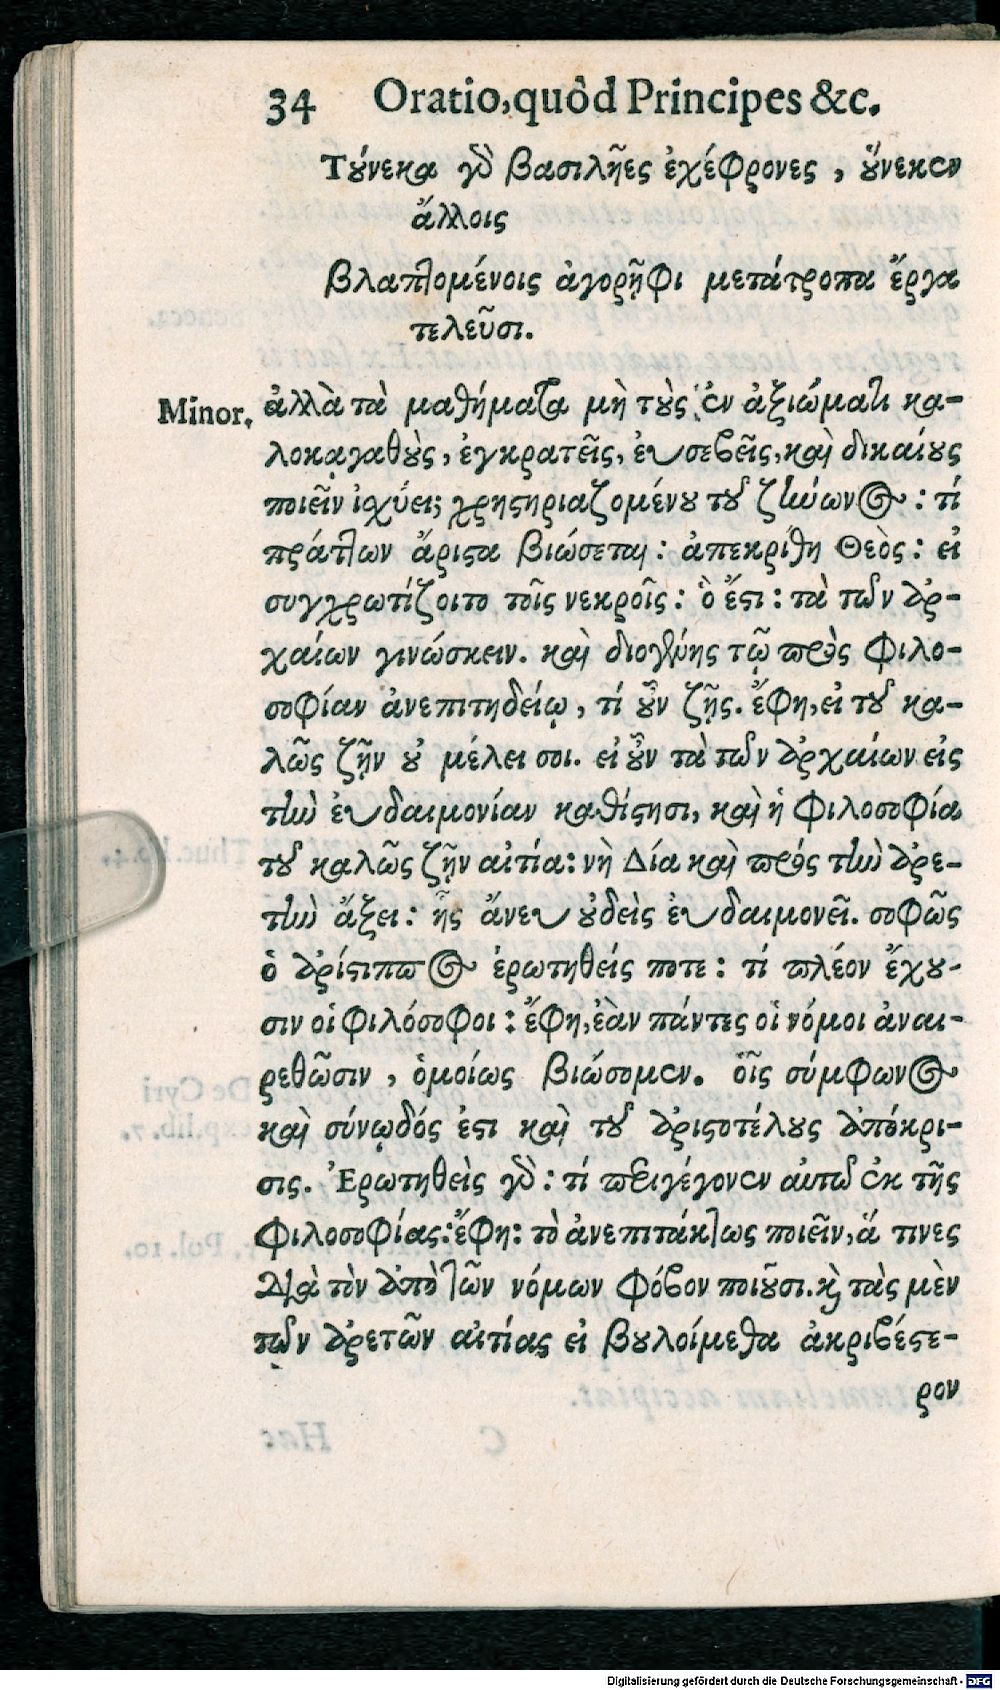 34 Oratio, quòd Principes &c.
Τούνεκα γὸ βασιλῆες ἐχέφρονες, οὕνεκεν
ἄλλοις
βλαπτομένοις ἀγορῆφι μετάτροπα ἔργα
τελεῦσι.
Minor. ἀλλὰ τὰ μαθήματα μὴ τοὺς ἐν ἀξιώματι κα-
λοκαγαθοὺς, ἐγκρατεῖς, ἐυσεβεῖς, καὶ δικαίους
ποιεῖν ἰσχύει; χρηστηριαζομένου τοῦ ζήνωνος: τί
πράττων ἄριστα βιώσεται: ἀπεκρίθη Θεὸς: εἰ
συγχρωτίζοιτο τοῖς νεκροῖς: ὃ ἔστι: τὰ τῶν ἀρ-
χαίων γινώσκειν. καὶ διογένης τῷ πρὸς φιλο-
σοφίαν ἀνεπιτηδείῳ, τί οὖν ζῇς. ἔφη, εἰ τοῦ κα-
λῶς ζῇν οὐ μέλει σοι. εἰ οὖν τὰ τῶν ἀρχαίων εἰς
τὴν ἐυδαιμονίαν καθίστησι, καὶ ἡ φιλοσοφία
τοῦ καλῶς ζῇν αἰτία: νὴ Δία καὶ πρὸς τὴν ἀρε-
τὴν ἄξει: ἧς ἄνευ οὐδεὶς ἐυδαιμονεῖ. σοφῶς
ὁ ἀρίστιππος ἐρωτηθείς ποτε: τί πλέον ἔχου-
σιν οἱ φιλόσοφοι: ἔφη, ἐὰν πάντες οἱ νόμοι ἀναι-
ρεθῶσιν, ὁμοίως βιώσομεν. οἷς σύμφωνος
καὶ σύνῳδός ἐστι καὶ τοῦ ἀριστοτέλους ἀπόκρι-
σις. Ἐρωτηθεὶς γὸ: τί περιγέγονεν αὐτῷ ἐκ τῆς
φιλοσοφίας: ἔφη: τὸ ἀνεπιτάκτως ποιεῖν, ἅ τινες
Διὰ τὸν ἀπὸ τῶν νόμων φόβον ποιοῦσι. κὶ τὰς μὲν
τῶν ἀρετῶν αἰτίας εἰ βουλοίμεθα ἀκριβέστε-
ρον
Digitalisierung gefördert durch die Deutsche Forschungsgemeinschaft - DFG